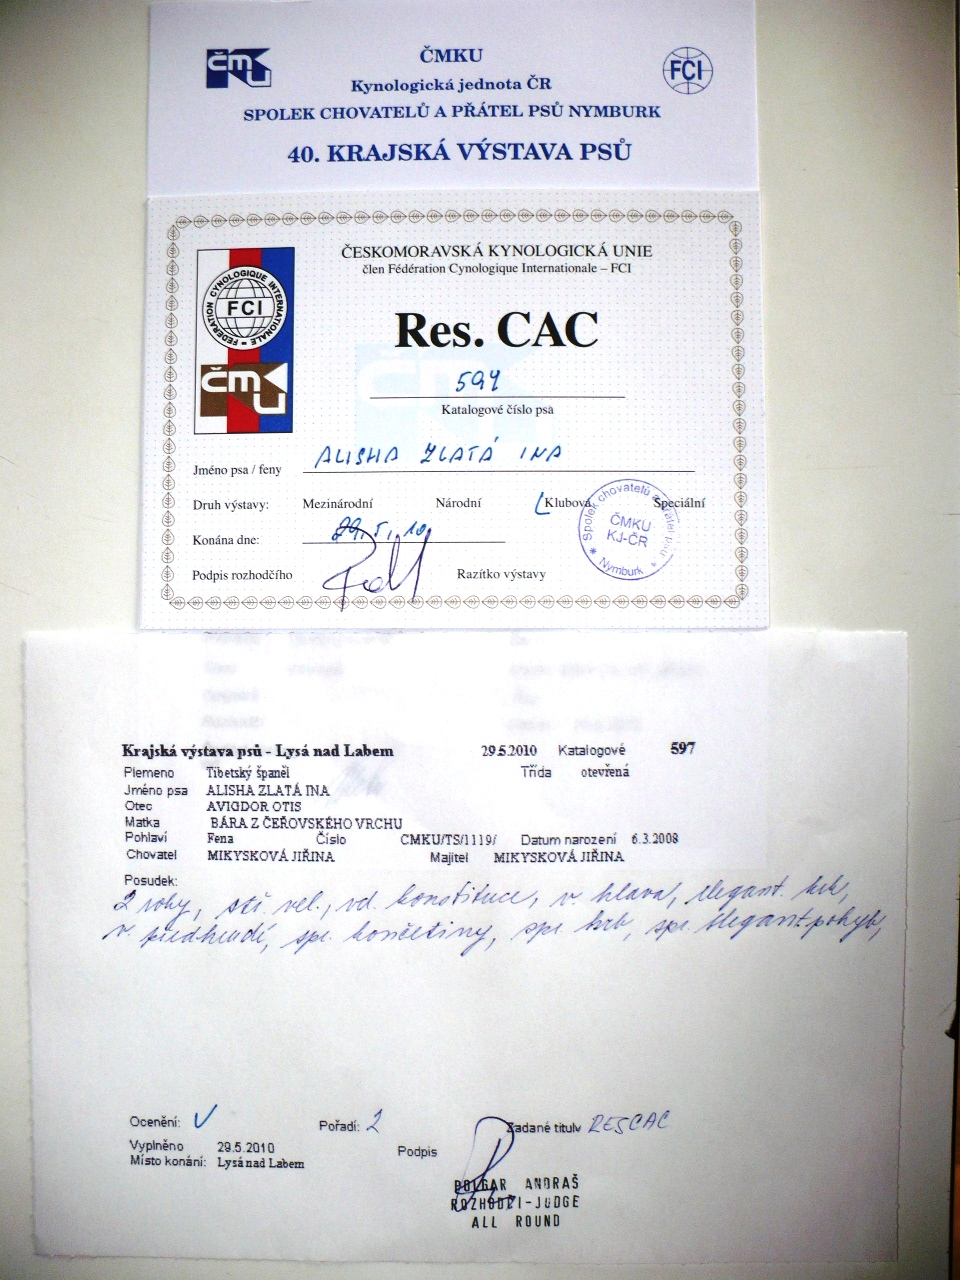 ČMKU
ČMKU
FCI
Kynologická jednota ČR
SPOLEK CHOVATELŮ A PŘÁTEL PSŮ NYMBURK
40. KRAJSKÁ VÝSTAVA PSŮ
ČESKOMORAVSKÁ KYNOLOGICKÁ UNIE
člen Fédération Cynologique Internationale – FCI
FEDERATION CYNOLOGIQUE INTERNATIONALE
FCI
ČMKU
Res. CAC
597
Katalogové číslo psa
Jméno psa / feny ALISHA ZLATÁ INA
Druh výstavy: Mezinárodní Národní Klubová Speciální
Konána dne: 29.5.10
Podpis rozhodčího Razítko výstavy
Spolek chovatelů a přátel psů
ČMKU
KJ-ČR
Nymburk
Krajská výstava psů - Lysá nad Labem 29.5.2010 Katalogové 597
Plemeno Tibetský španěl Třída otevřená
Jméno psa ALISHA ZLATÁ INA
Otec AVIGDOR OTIS
Matka BÁRA Z ČEŘOVSKÉHO VRCHU
Pohlaví Fena Číslo CMKU/TS/1119/ Datum narození 6.3.2008
Chovatel MIKYSKOVÁ JIŘINA Majitel MIKYSKOVÁ JIŘINA
Posudek:
2 roky, stř. vel., vd. konstituce, v. hlava, elegant. krk,
v. předhrudí, spr. končetiny, spr. hrb, spr. elegant. pohyb,
Ocenění: V Pořadí: 2 Zadané tituly RESCAC
Vyplněno 29.5.2010 Podpis
Místo konání: Lysá nad Labem
POLGAR ANDRAŠ
ROZHODČI-JUDGE
ALL ROUND